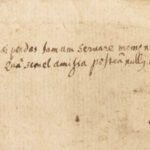 perdas famam servare memento
Qua semel amissa postea null